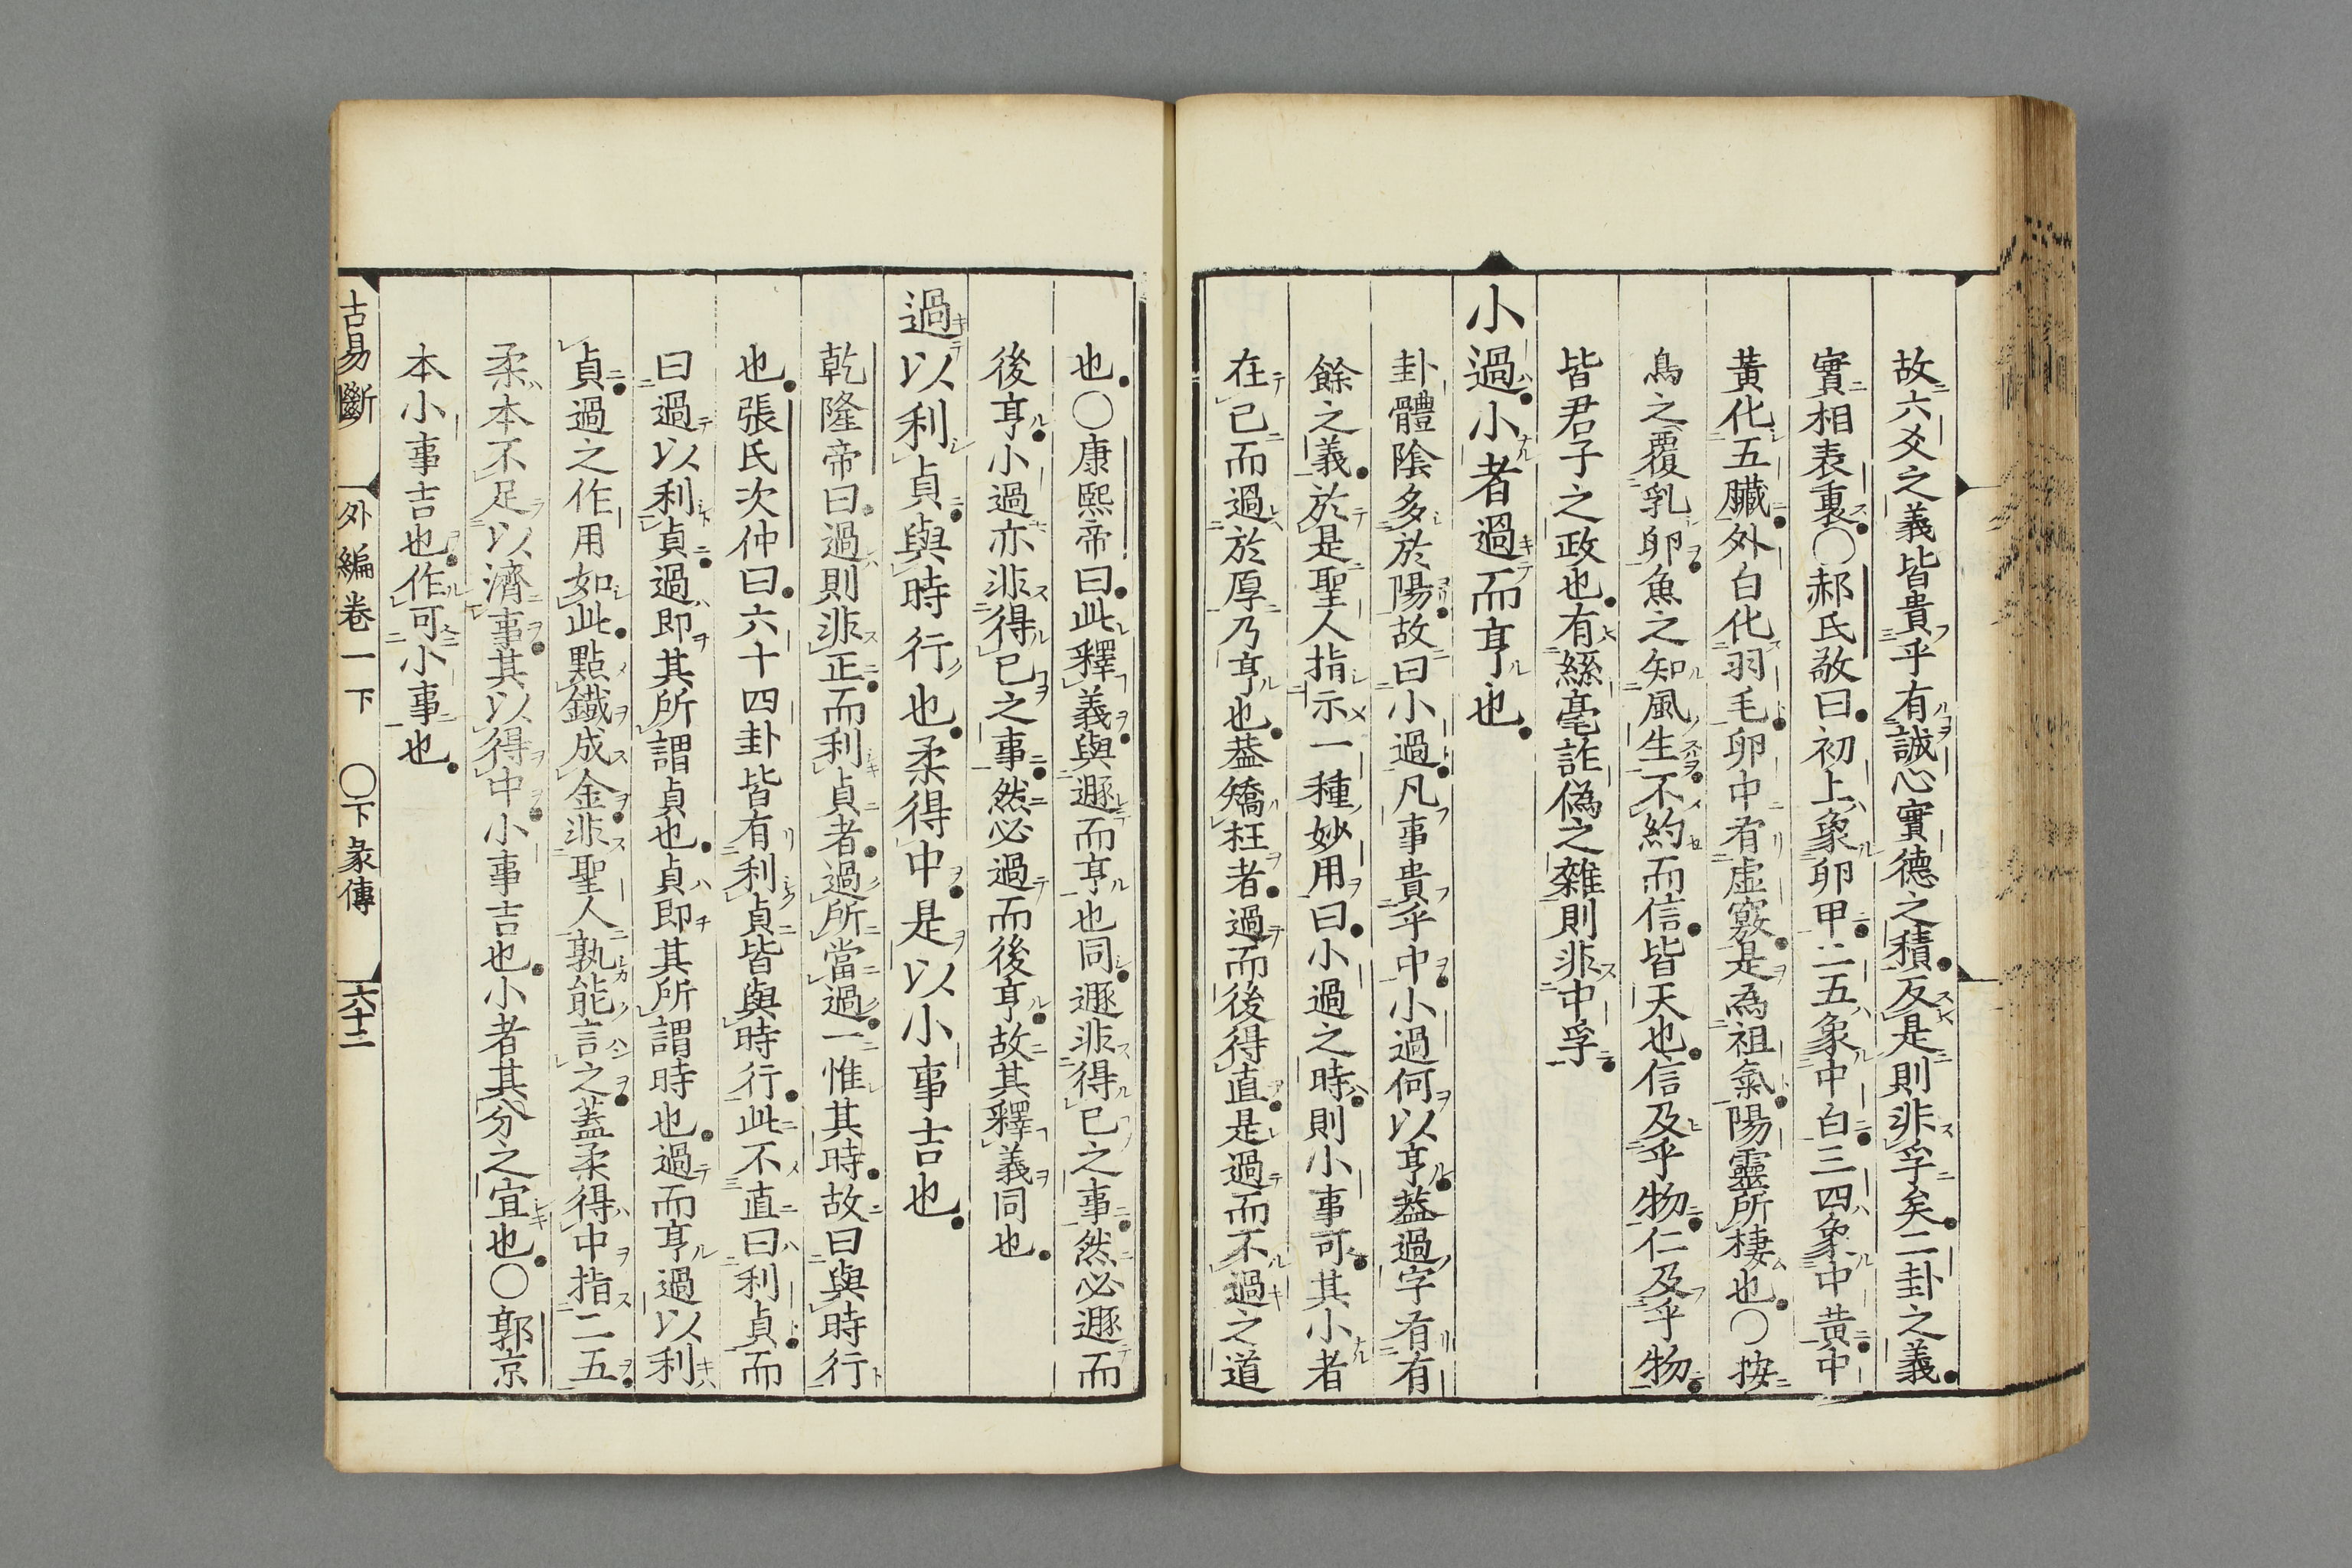 故六爻之義皆貴乎有誠心實德之積反是則非孚矣二卦之義
實相表裏〇郝氏敬曰初上象卵甲二五象中白三四象中黃中
黃化五臟外白化羽毛卵中有虛竅是為祖氣陽靈所棲也〇按
鳥之覆乳卵魚之知風生不約而信皆天也信及乎物仁及乎物
皆君子之政也有絲毫詐僞之雜則非中孚
小過小者過而亨也
卦體陰多於陽故曰小過凡事貴乎中小過何以亨葢過字有有
餘之義於是聖人指示一種妙用曰小過之時則小事可其小者
在已而過於厚乃亨也葢矯枉者過而後得直是過而不過之道
也〇康熙帝曰此釋義與遯而亨也同遯非得已之事然必遯而
後亨小過亦非得已之事然必過而後亨故其釋義同也
過以利貞與時行也柔得中是以小事吉也
乾隆帝曰過則非正而利貞者過所當過一惟其時故曰與時行
也張氏次仲曰六十四卦皆有利貞皆與時行此不直曰利貞而
曰過以利貞過即其所謂貞也貞即其所謂時也過而亨過以利
貞過之作用如此點鐵成金非聖人孰能言之蓋柔得中指二五
柔本不足以濟事其以得中小事吉也小者其分之宜也〇郭京
本小事吉也作可小事也
古易斷　外編卷一下　〇下彖傳　六十二